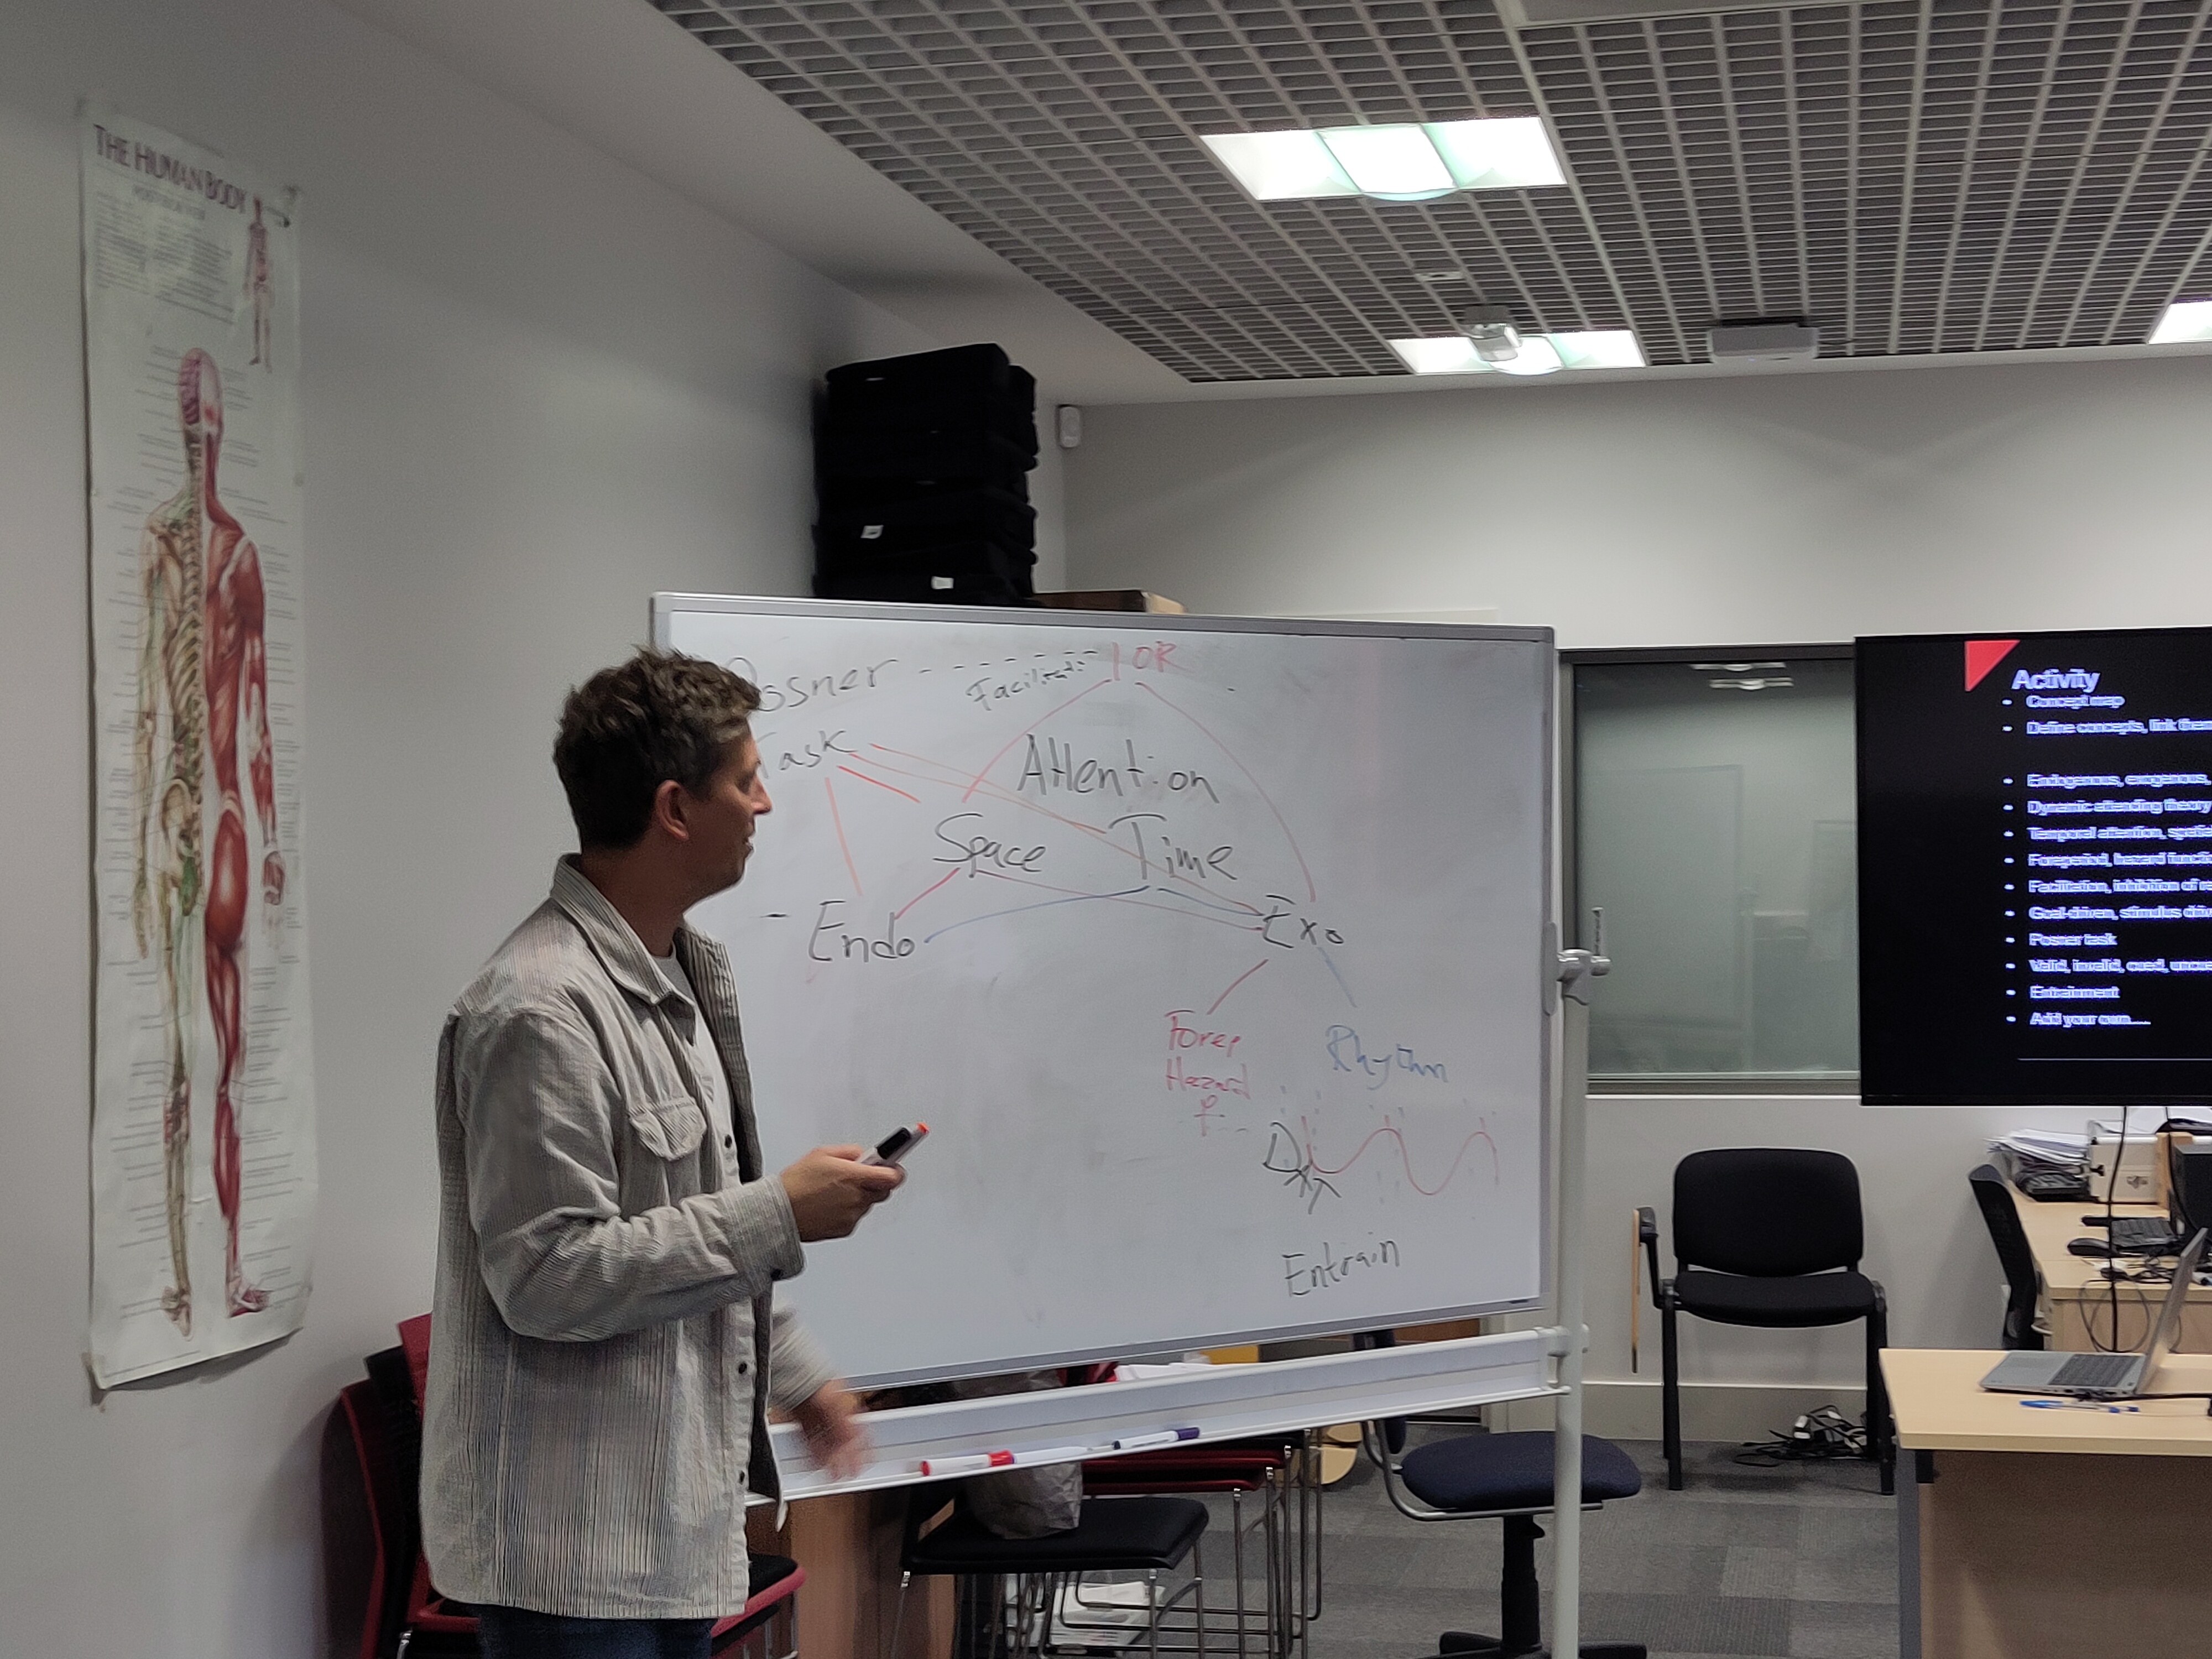 THE HUMAN BODY
Posner
Facilitati
IOR
Task
Attention
Space
Time
Endo
Exo
Forep
Hazard
Rhythm
DAT
Entrain
Activity
Concept map
Define concepts, link them
Endogenous, exogenous,
Dynamic attending theory
Temporal attention, spatial
Foreperiod, hazard functi
Facilitation, inhibition of re
Goal-driven, stimulus driv
Posner task
Valid, invalid, cued, uncue
Entrainment
Add your own.....